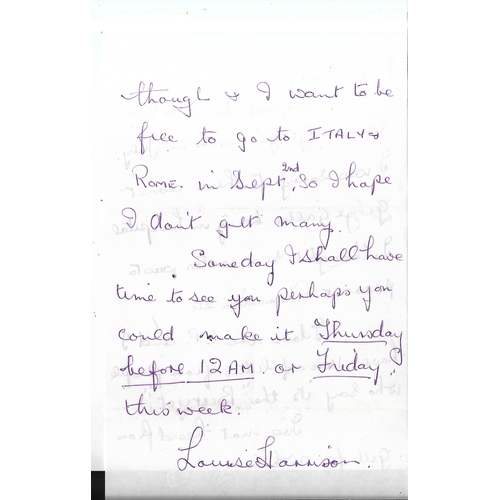 though & I want to be
free to go to ITALY &
ROME. in Sept 2nd, so I hope
I don't get many.
Someday I shall have
time to see you perhaps you
could make it Thursday
before 12 AM. or Friday?
this week.
Louise Harrison.